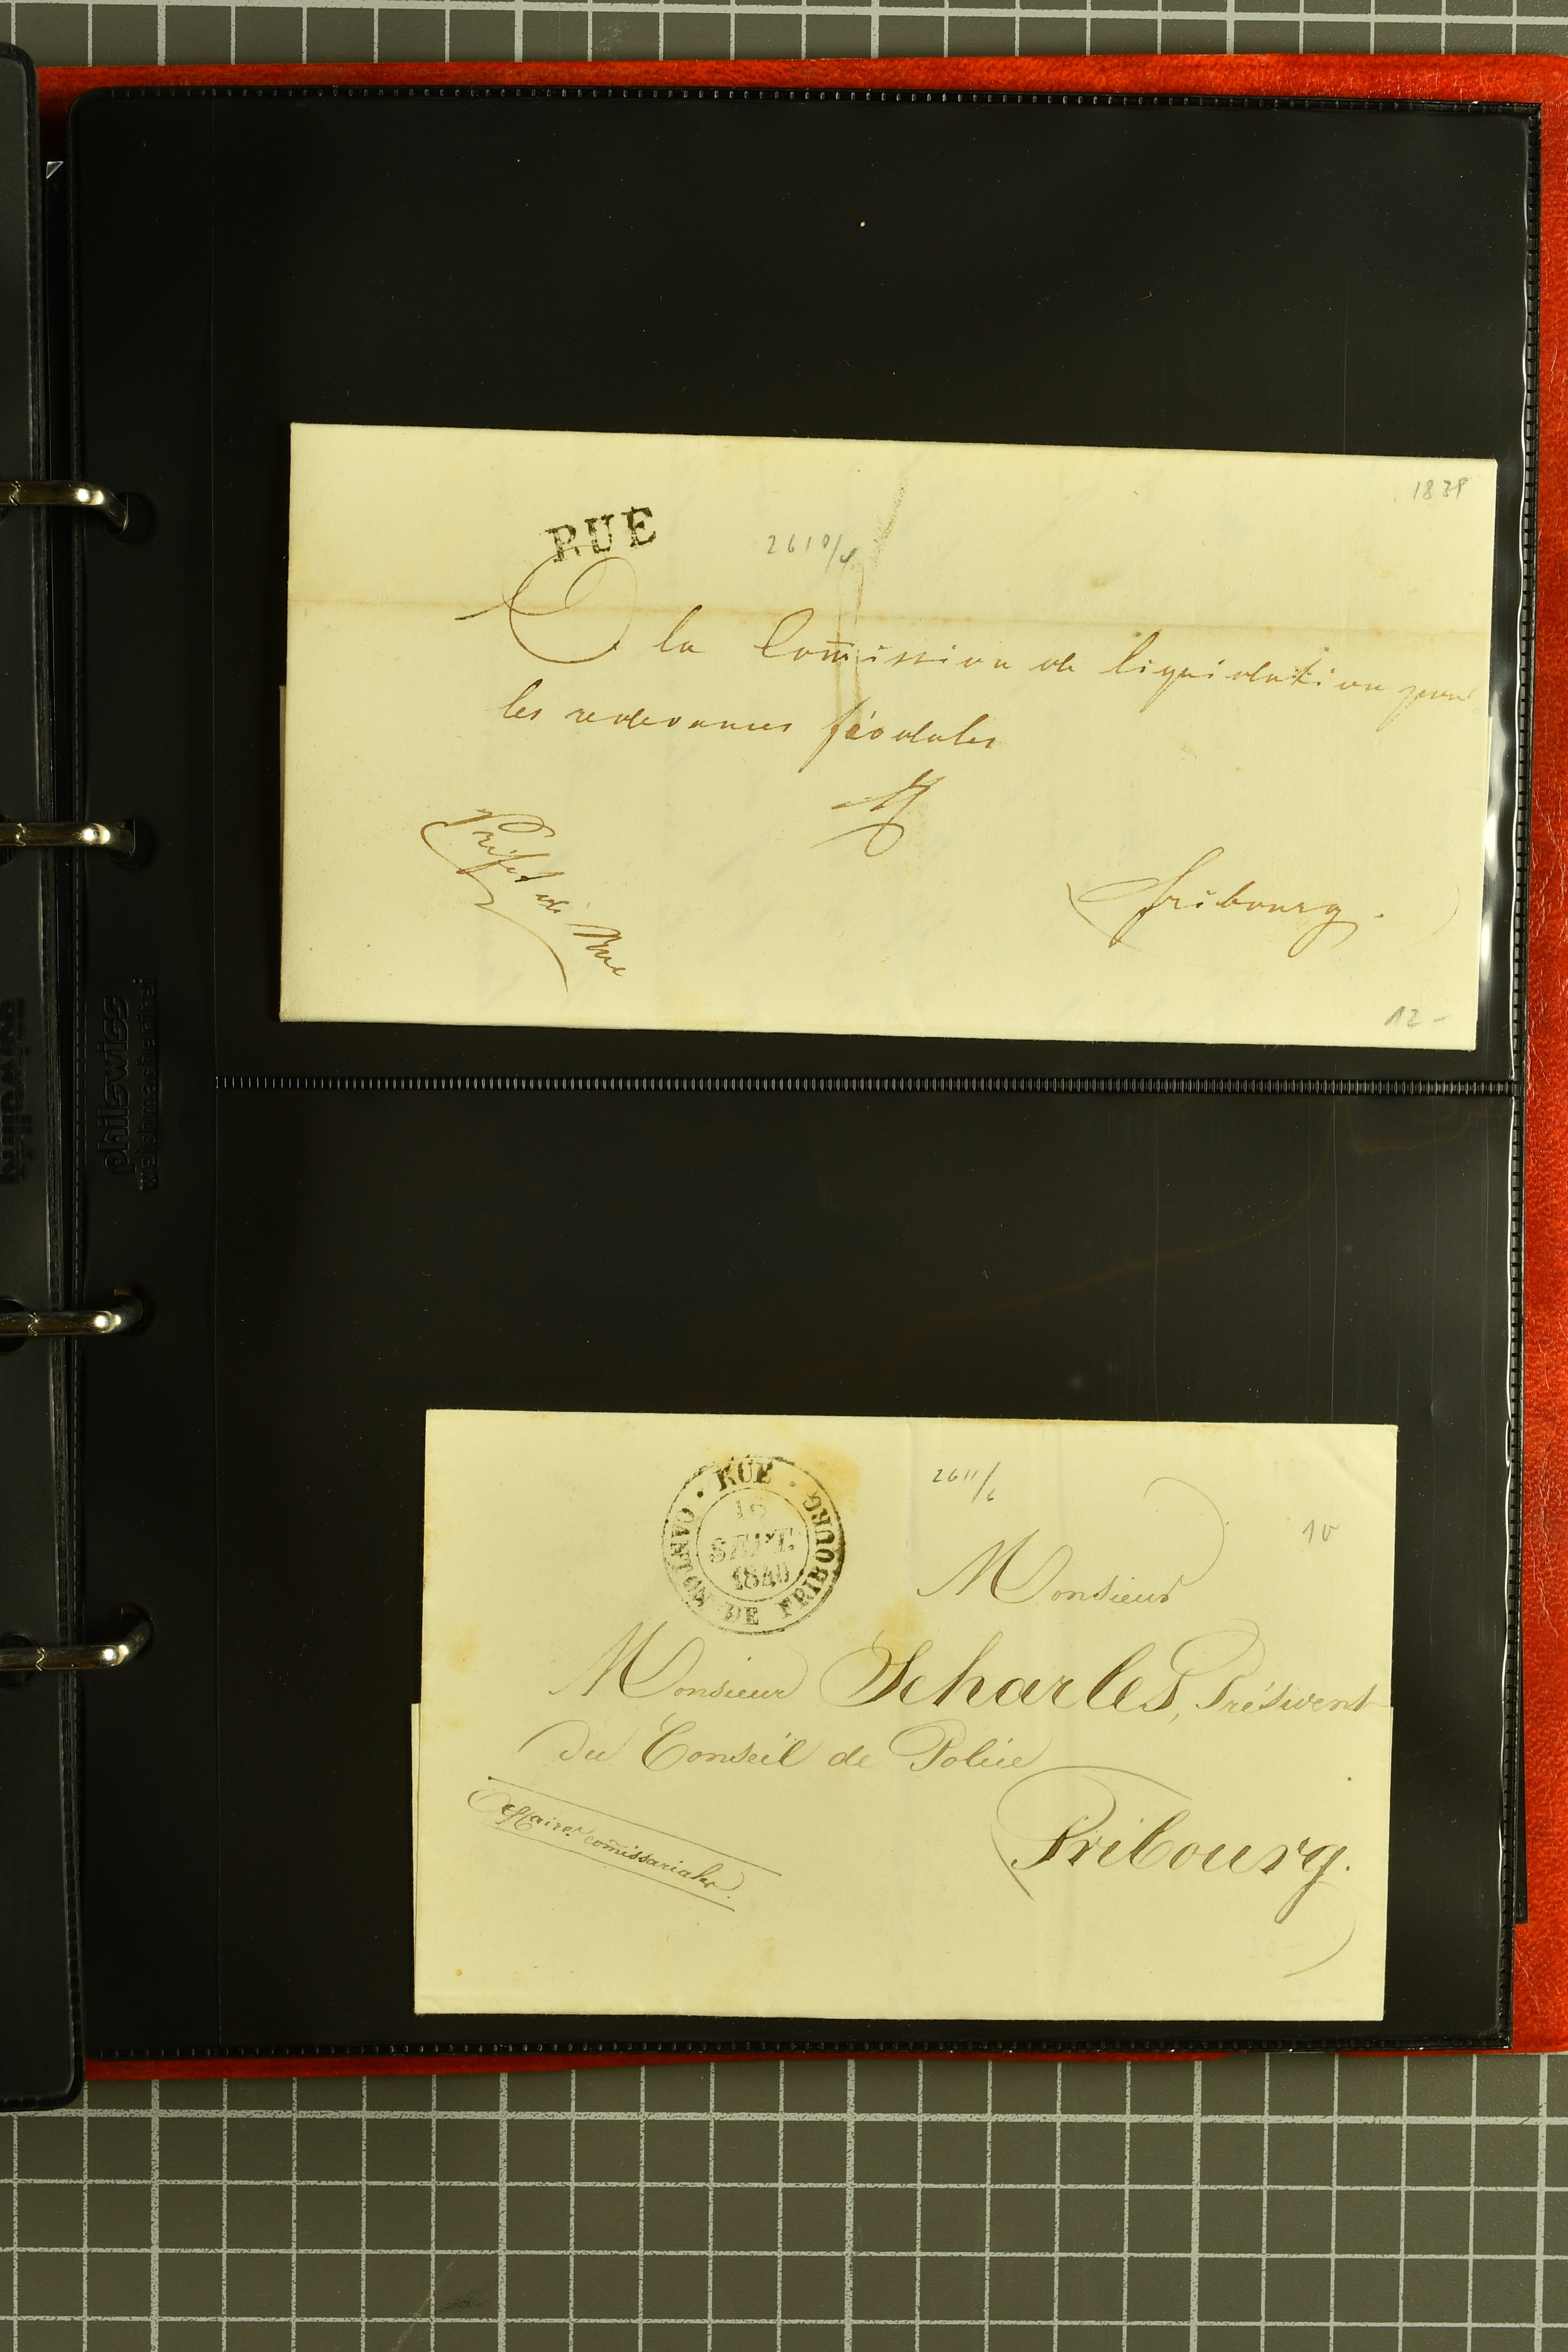 RUE
2610/4
1839
A la Com̄ission de liquidation pour
les redevances féodales
à
Préfet de Rue
fribourg.
12 -
philswiss
weichmacherfrei
RUE
CANTON DE FRIBOURG
16
SEPT.
1840
2611/6
10
Monsieur
Monsieur Scharles, Président
du Conseil de Police
Affaires com̄issariales.
Fribourg.